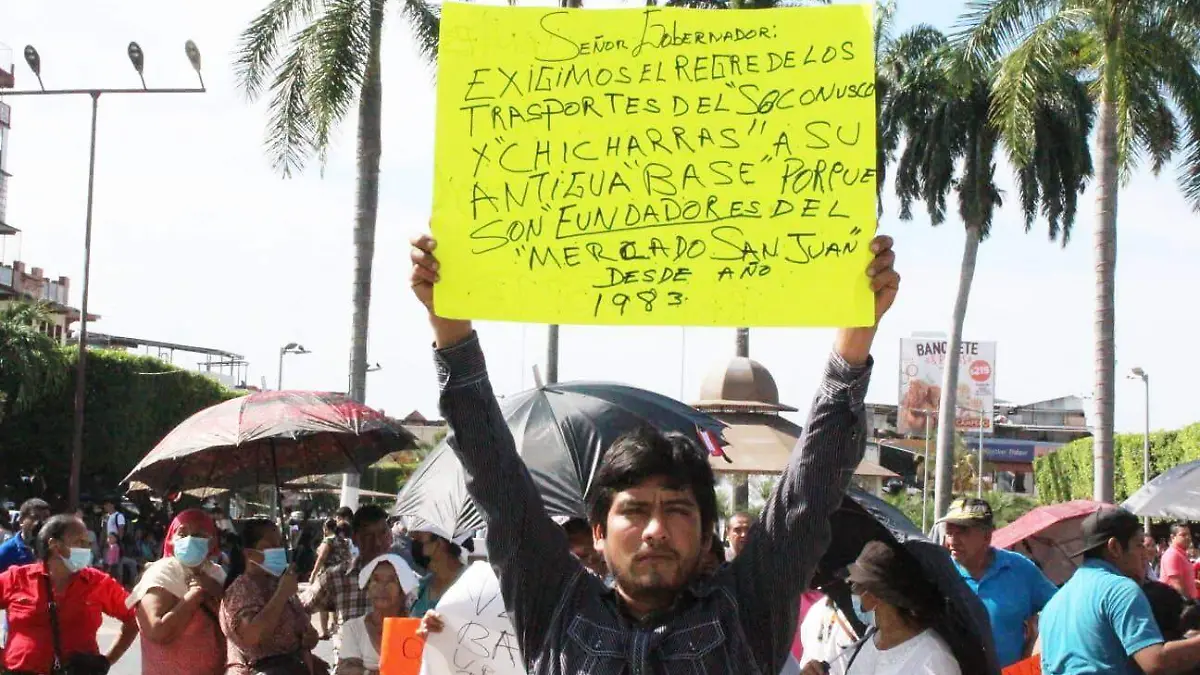 SEÑOR GOBERNADOR:
EXIGIMOS EL REGRE DE LOS
TRASPORTES DEL "SOCONUSCO
X "CHICHARRAS" A SU
ANTIGUA "BASE" PORPUE
SON "FUNDADORES DEL
"MERCADO SAN JUAN"
DESDE AÑO
1983.
BANQUETE
$219
BA